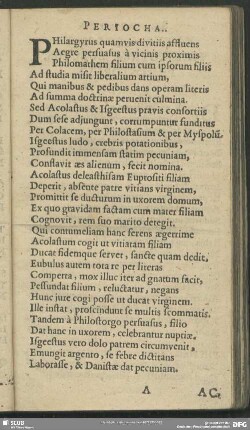 PERIOCHA.
PHilargyrus quamvis divitiis affluens
Aegre persuasus à vicinis proximis
Philomathem filium cum ipsorum filiis
Ad studia misit liberalium artium,
Qui manibus & pedibus dans operam literis
Ad summa doctrinæ pervenit culmina.
Sed Acolastus & Isgeestus pravis consortiis
Dum sese adjungunt, corrumpuntur funditus
Per Colacem, per Philostasium & per Myspolũ.
Isgeestus ludo, crebris potationibus,
Profundit immensam statim pecuniam,
Constavit æs alienum, fecit nomina.
Acolastus deleasthisam Euprositi filiam
Deperit, absente patre vitians virginem,
Promittit se ducturum in uxorem domum,
Ex quo gravidam factam cum mater filiam
Cognovit, rem suo marito detegit.
Qui contumeliam hanc ferens ægerrime
Acolastum cogit ut vitiatam filiam
Ducat fidemque servet, sancte quam dedit,
Eubulus autem tota re per literas
Comperta, mox illuc iter ad gnatum facit,
Pessundat filium, reluctatur, negans
Hunc jure cogi posse ut ducat virginem.
Ille instat, proscindunt se multis scommatis.
Tandem à Philostorgo persuasus, filio
Dat hanc in uxorem, celebrantur nuptiæ,
Isgeestus vero dolo patrem circumvenit,
Emungit argento, se febre dictitans
Laborasse, & Danistæ dat pecuniam.
A AC.
SLUB
DFG